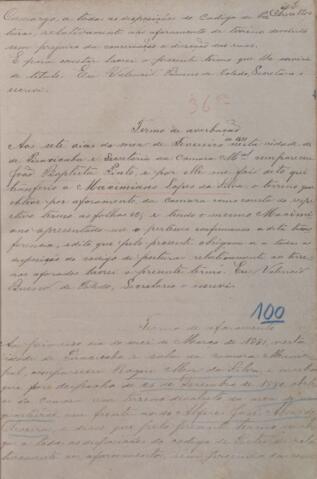 Camargo, a todas as disposições do Codigo de Pos-
turas, relativamente aos aforamento de terreno devoluto
sem prejuizo da concessão e direcção das ruas.
E para constar lavrei o presente termo que lhe servirá
de titulo. Eu Valencio Bueno de Toledo, Secretario o
escrevi.
36
Termo de averbação
Aos sete dias do mez de Fevereiro nesta cidade
de Piracicaba e Secretaria da Camara Mal compareceu
João Baptista Pinto, e por elle me foi dito que
transferio a Maximiano Lopes da Silva, o terreno que
obteve por aforamento da Camara como consta do res-
pectivo termo as folhas 18, e tendo o mesmo Maximi-
ano apresentado o pertence confirmando a dita trans
ferencia, e dito que pelo presente obrigava a todas as
disposição do codigo de posturas relativamente ao terre-
no aforado lavrei o presente termo. Eu Valencio
Bueno de Toledo, Secretario o escrevi.
100
Termo de aforamento
Ao primeiro dia do mez de Março de 1881, nesta
cidade de Piracicaba e sala da camara Munici
pal, compareceu Roque da Silva, e
que por despacho de de Dezembro de 1880, obteve
da Camara um terreno devoluto na rua
em frente ao do Alferes José
e disse que pelo presente termo
a todas as disposições do codigo de Posturas
ao aforamento, sem